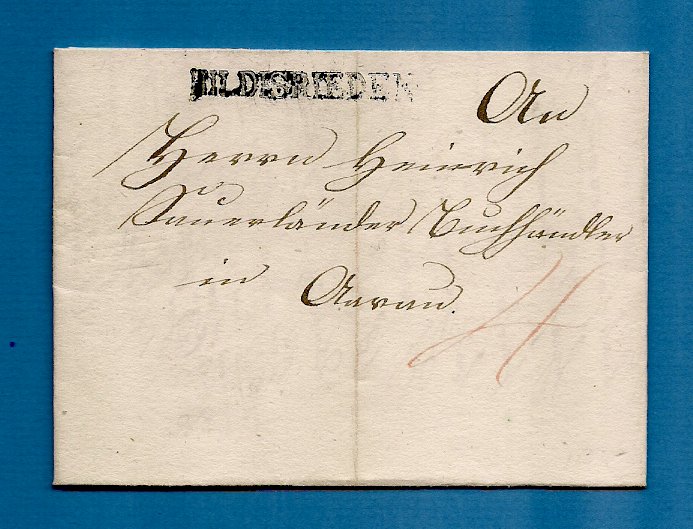 HILDISRIEDEN
An
Herrn Heinrich
Sauerländer Buchhändler
in Aarau.
4